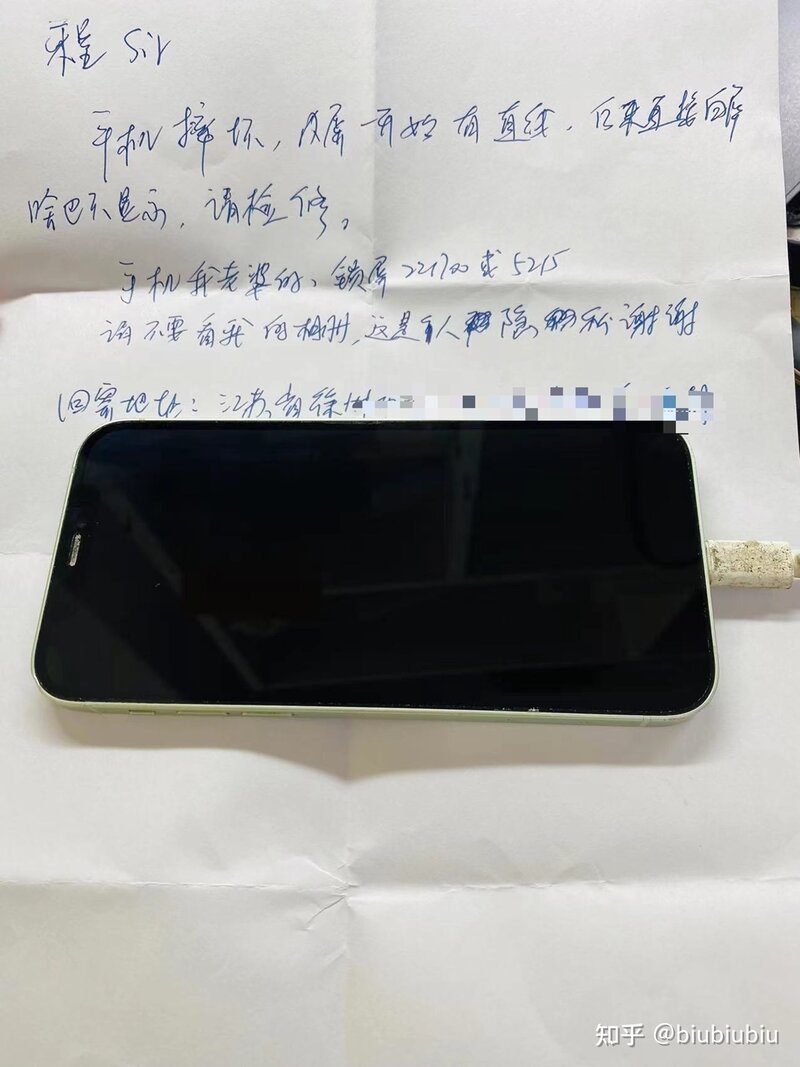 程 Sir
手机摔坏，反屏开始有直线，后来直接白屏
啥也不显示，请检修。
手机我老婆的，锁屏 221700 或 5215
请不要看我的相册，这是个人隐私谢谢
回寄地址：江苏省徐州
知乎 @biubiubiu